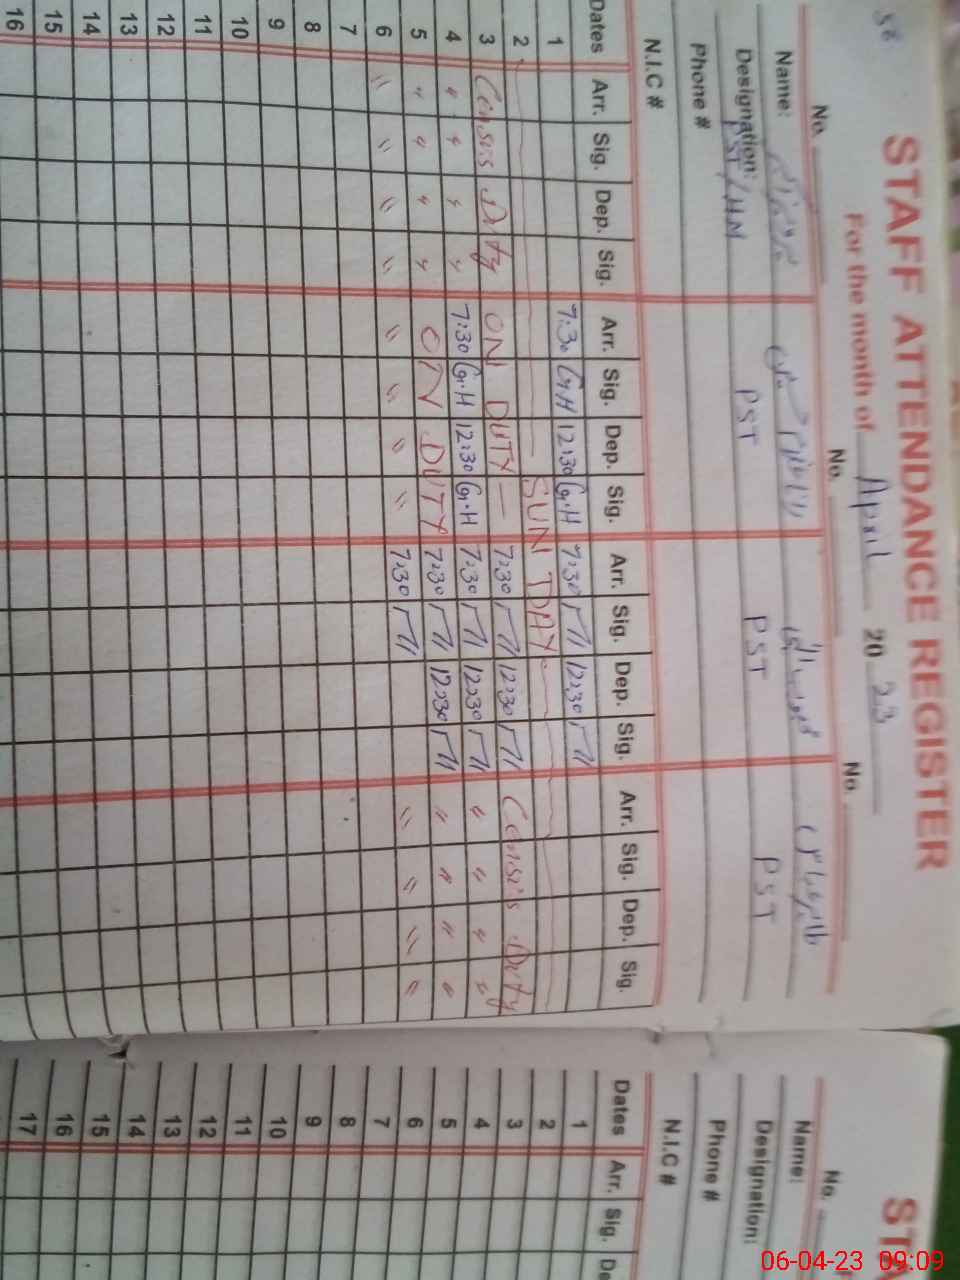 56
STAFF ATTENDANCE REGISTER
For the month of April 2023
No. No. No.
Name:
Designation: PST/HM PST PST PST
Phone #
N.I.C #
Dates Arr. Sig. Dep. Sig. Arr. Sig. Dep. Sig. Arr. Sig. Dep. Sig. Arr. Sig. Dep. Sig.
1 7:30 G.H 12:30 G.H 7:30 12:30
2 SUN DAY
3 Censis Duty ON DUTY — 7:30 12:30 Censis Duty
4 〃 〃 〃 〃 7:30 G.H 12:30 G.H 7:30 12:30 〃 〃 〃 〃
5 〃 〃 〃 〃 ON DUTY 7:30 12:30 〃 〃 〃 〃
6 〃 〃 〃 〃 〃 〃 〃 〃 7:30 〃 〃 〃 〃
7
8
9
10
11
12
13
14
15
16
STA
No.
Name:
Designation:
Phone #
N.I.C #
Dates Arr. Sig. De
1
2
3
4
5
6
7
8
9
10
11
12
13
14
15
16
17
06-04-23 09:09